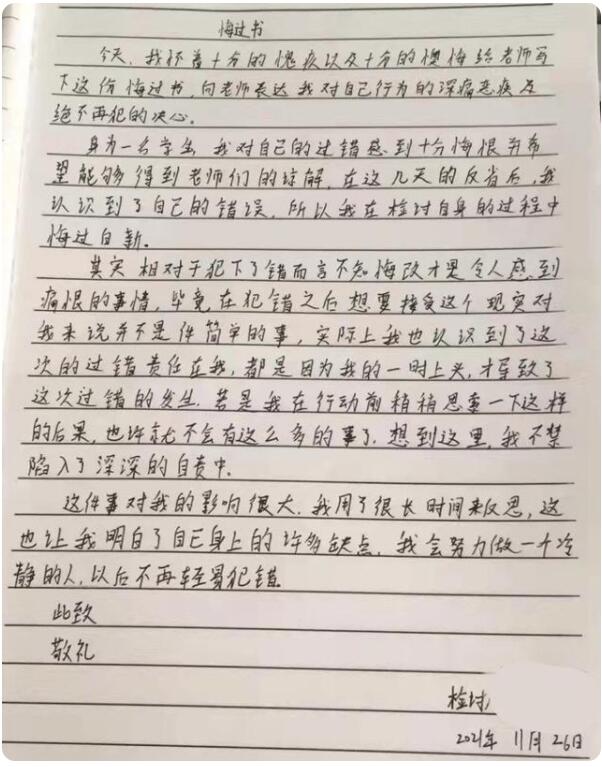 悔过书
今天，我怀着十分的愧疚以及十分的懊悔给老师写
下这份悔过书，向老师表达我对自己行为的深痛恶疾及
绝不再犯的决心。
身为一名学生，我对自己的过错感到十分悔恨并希
望能够得到老师们的谅解，在这几天的反省后，我
认识到了自己的错误，所以我在检讨自身的过程中
悔过自新。
其实相对于犯下了错而言不知悔改才更令人感到
痛恨的事情，毕竟在犯错之后想要接受这个现实对
我来说并不是件简单的事，实际上我也认识到了这
次的过错责任在我，都是因为我的一时上头，才导致了
这次过错的发生。若是我在行动前稍稍思量一下这样
的后果，也许就不会有这么多的事了。想到这里，我不禁
陷入了深深的自责中。
这件事对我的影响很大，我用了很长时间来反思，这
也让我明白了自己身上的许多缺点，我会努力做一个冷
静的人，以后不再轻易犯错。
此致
敬礼
检讨
2021年 11月 26日